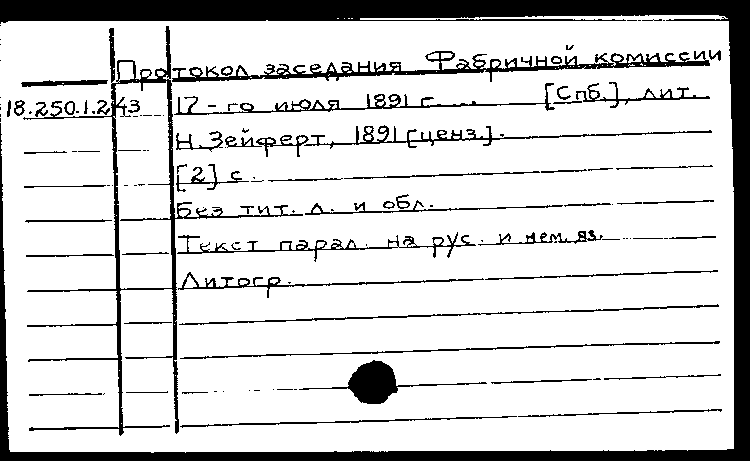 Протокол заседания Фабричной комиссии
18.250.1.243 17-го июля 1891 г. ... [Спб.], лит.
Н. Зейферт, 1891 [ценз.].
[2] с.
Без тит. л. и обл.
Текст парал. на рус. и нем. яз.
Литогр.